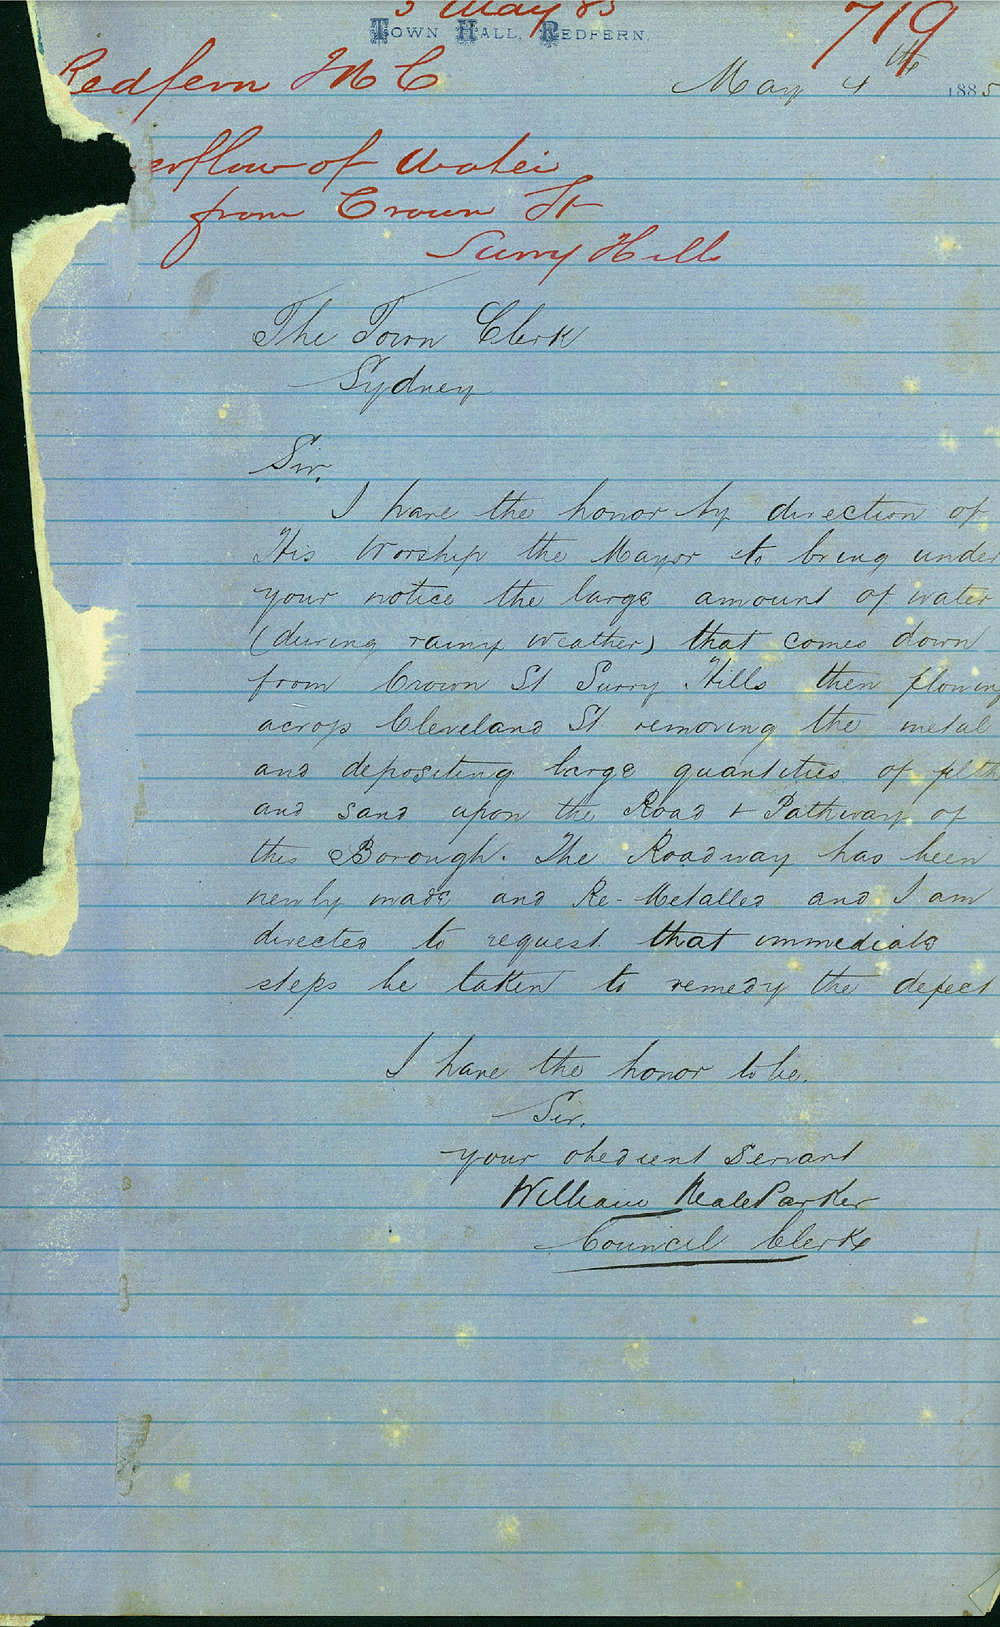 5 May 85
719
TOWN HALL, REDFERN.
Redfern M C
May 4th 1885
erflow of Water
from Crown St
Surry Hills
The Town Clerk
Sydney
Sir,
I have the honor by direction of
His Worship the Mayor to bring under
your notice the large amount of water
(during rainy weather) that comes down
from Crown St Surry Hills then flowing
across Cleveland St removing the metal
and depositing large quantities of filth
and sand upon the Road & Pathway of
this Borough. The Roadway has been
newly made and Re-Metalled and I am
directed to request that immediate
steps be taken to remedy the defect
I have the honor to be.
Sir,
your obedient Servant
William Neale Parker
Council Clerk